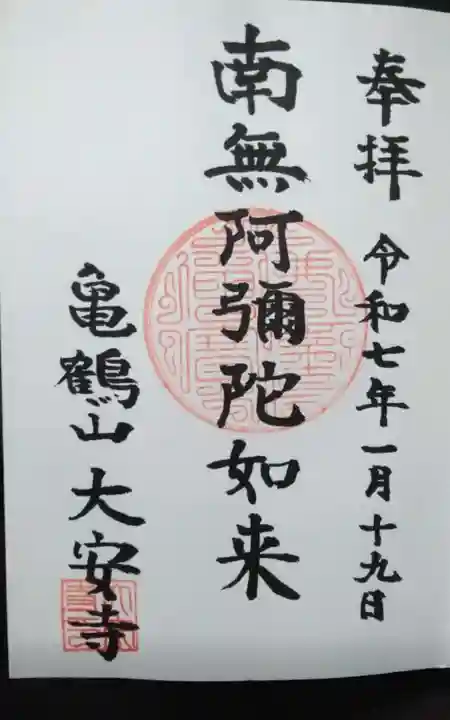 奉拝 令和七年一月十九日
南無阿彌陀如来
亀鶴山 大安寺